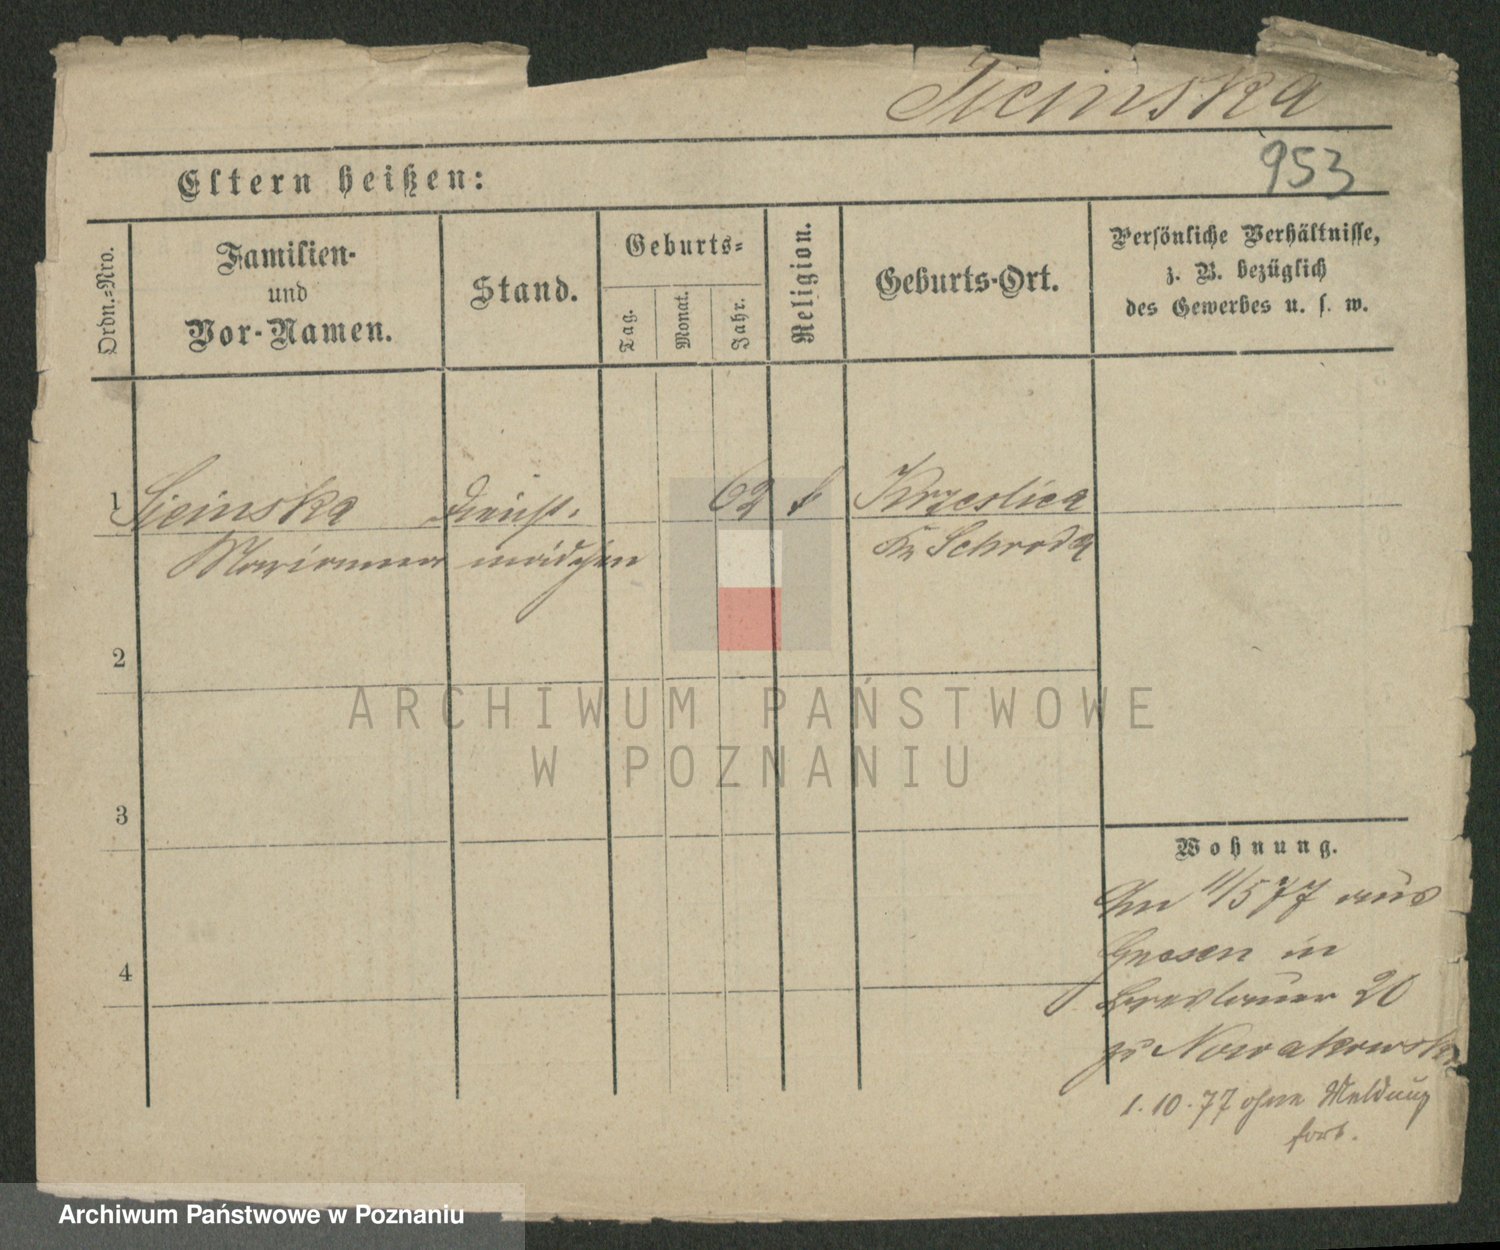 Sicinska
953
Eltern heißen:
Ordn.-Nro.
Familien-
und
Vor-Namen.
Stand.
Geburts-
Tag.
Monat.
Jahr.
Religion.
Geburts-Ort.
Persönliche Verhältnisse,
z. B. bezüglich
des Gewerbes u. s. w.
1 Sicinska Dienst- 62 k Krzeslice
Marianna mädchen Kr Schroda
2
3
4
Wohnung.
Am 11/5 77 aus
Gnesen in
Breslauer 20
zu Nowakowski
1.10.77 ohne Meldung
fort.
ARCHIWUM PAŃSTWOWE
W POZNANIU
Archiwum Państwowe w Poznaniu